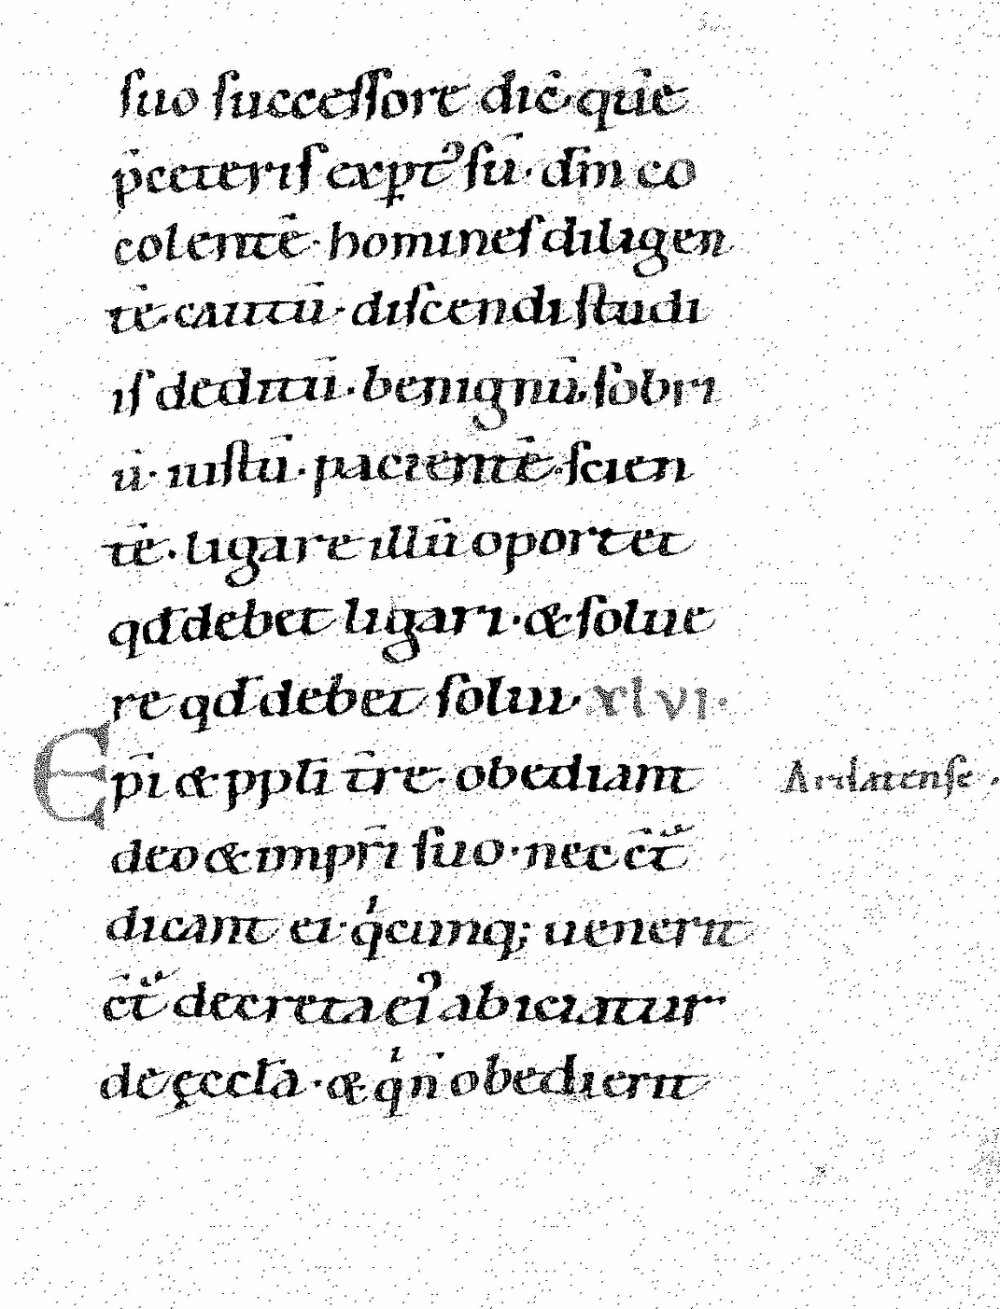 suo successore dic̄ · quē
p̄ceteris exptꝰ sū · dm̄ co
colentē · homines diligen
tē · cautū · discendi studi
is deditū · benignū · sobri
ū · iustū · pacientē · scien
tē · ligare illū oportet
qđ debet ligari · & solue
re qđ debet solui · xlvi ·
Epı̄ & ppli t̄re · obediant
Arilatense ·
deo & impr̄i suo · nec ct̄ͣ
dicant ei · qͥcunq; uenerit
ct̄ͣ decreta eiꝰ abiciatur
de ęccl̄a · & qͥ n̄ obedierit